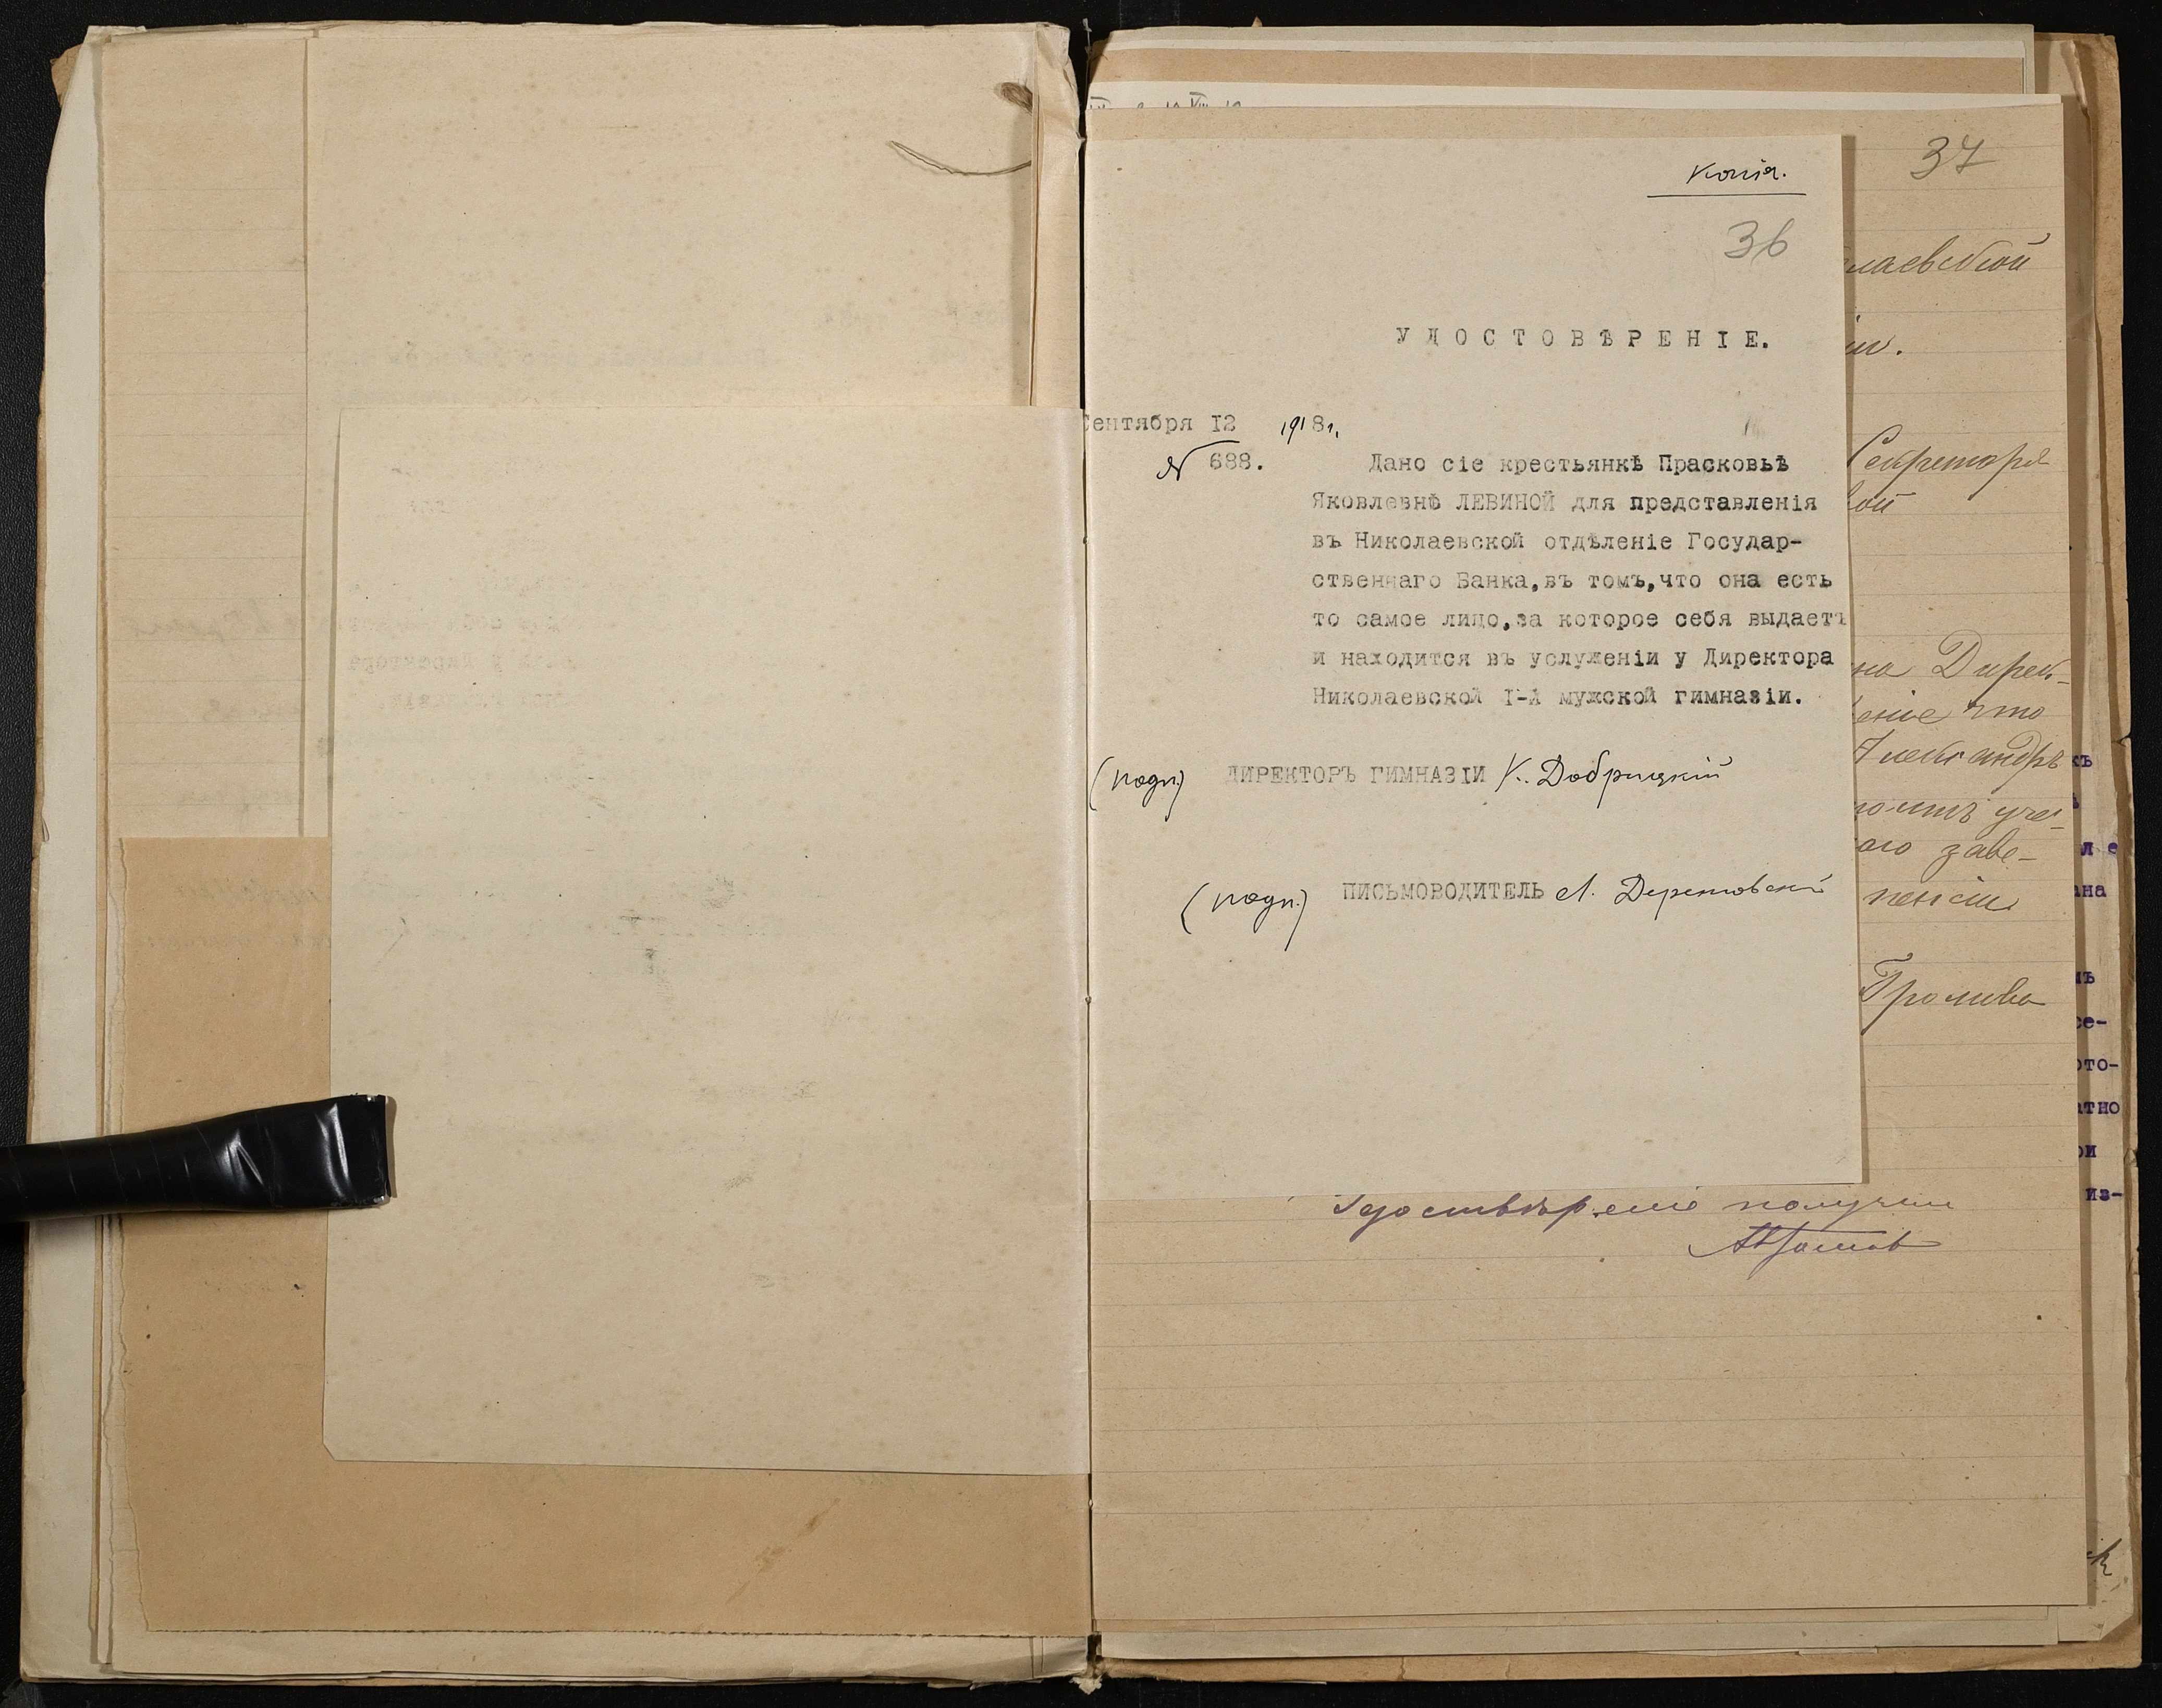 Копія.
36
УДОСТОВѢРЕНІЕ.
Сентября 12 1918г.
№ 688.
Дано сіе крестьянкѣ Прасковьѣ
Яковлевнѣ ЛЕВИНОЙ для представленія
въ Николаевской отдѣленіе Государ-
ственнаго Банка,въ томъ,что она есть
то самое лицо,за которое себя выдаетъ
и находится въ услуженіи у Директора
Николаевской I-й мужской гимназіи.
(подп.) ДИРЕКТОРЪ ГИМНАЗІИ К. Добрицкій
(подп.) ПИСЬМОВОДИТЕЛЬ
37
лаевской
Секретаря
на Дирек-
еніе что
Александръ
ого заве-
пенсіи
Громова
Удостовѣреніе получил
къ
ле
на
се-
ото-
атно
ри
из-